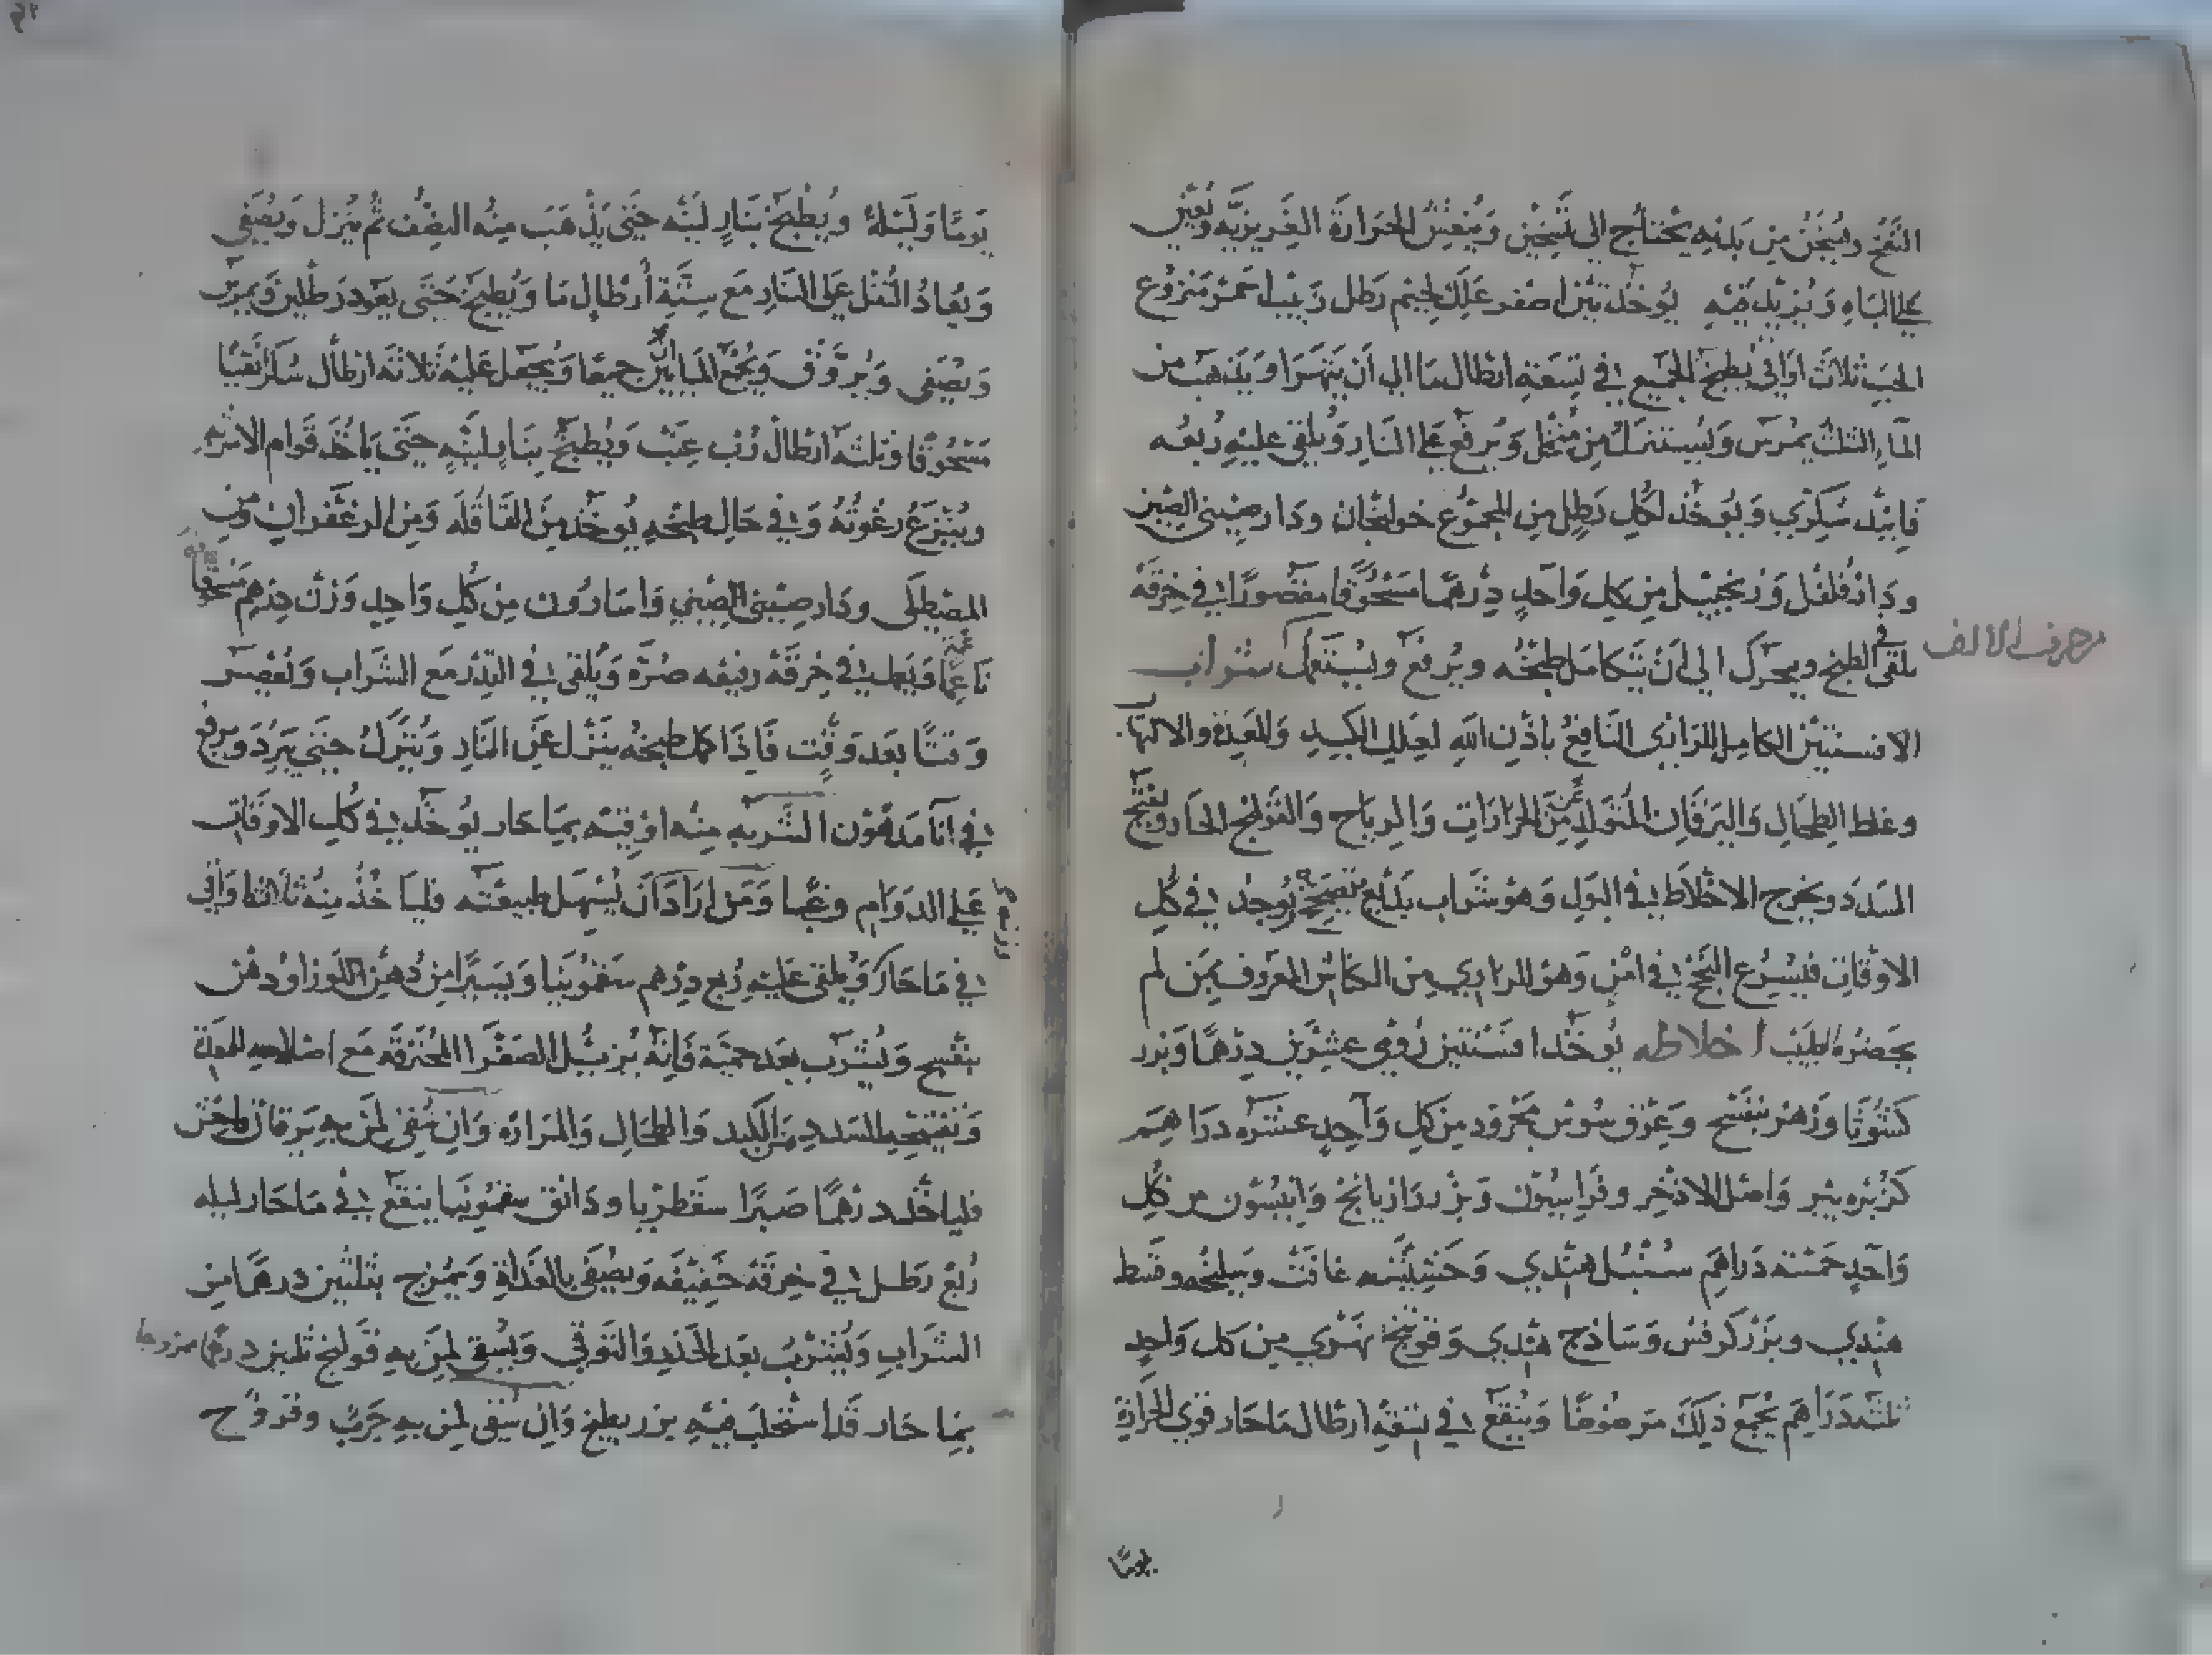 النفخ ويسخن من بدنه يحتاج الى تسخين وينعش الحرارة الغريزيه ويعين
على الباه ويزيد فيه يوخذ تين اصفر علك لحيم رطل زبيب احمر منزوع
الحب ثلاث اواقي يطبخ الجميع في تسعة ارطال ما الى ان يتهرا ويذهب من
الماء الثلث يمرس ويستنزل من منخل ويرفع على النار ويلقى عليه ربعه
فانيد سكري ويوخذ لكل رطل من المجموع خولنجان ودار صيني الصين
ودار فلفل وزنجبيل من كل واحد درهما مسحوقا مقصورا في خرقة
يلقى في الطبخ ويحرك الى ان يتكامل طبخه ويرفع ويستعمل شراب
من حرف الالف
الافسنتين الكامل للرازي النافع باذن الله لعلل الكبد والمعدة والالتهاب
وغلظ الطحال واليرقان المتولد عن المرارات والرياح والقولنج الحاد ويفتح
السدد ويخرج الاخلاط في البول وهو شراب بديع يوجد في كل
الاوقات فيسرع النجح في امن وهو للرازي من الكناش المعروف بمن لم
يحضره الطبيب اخلاطه يوخذ افسنتين رومي عشرين درهما وبزر
كشوثا وزهر بنفسج وعرق سوس مجرود من كل واحد عشرة دراهم
كزبره بير واصل الاذخر وفراسيون وبزر رازيانج وانيسون من كل
واحد خمسة دراهم سنبل هندي وحشيشه غافت وسليخه وقسط
هندي وبزر كرفس وساذج هندي وفوتنج نهري من كل واحد
ثلثه دراهم يجمع ذلك مرضوضا وينقع في ستة ارطال ما حار قوي الحرارة
يوما
يوما وليله ويطبخ بنار لينه حتى يذهب منه النصف ثم ينزل ويصفى
ويعاد الثفل على النار مع ستة ارطال ما ويطبخ حتى يعود رطلين ويمرس
ويصفى ويروق ويجمع المايين جميعا ويجعل عليه ثلاثة ارطال سكر نقيا
مسحوقا وثلثه ارطال رب عنب ويطبخ بنار لينه حتى ياخذ قوام الاشربه
وينزع رغوته وفي حال طبخه يوخذ من القاقله ومن الزعفران ومن
المصطكى ودار صيني الصيني واسارون من كل واحد وزن درهم مسحوقا
ناعما ويعمل في خرقة رفيعه صره ويلقى في القدر مع الشراب وتعصر
وقتا بعد وقت فاذا كمل طبخه ينزل عن النار ويترك حتى يبرد ويرفع
في انا مدهون الشربه منه اوقيه بما حار يوخذ في كل الاوقات
على الدوام وغبا ومن اراد ان يسهل طبيعته فلياخذ منه ثلاثة اواقي
في ما حار ويلقى عليه ربع درهم سقمونيا ويسيرا من دهن اللوز او دهن
بنفسج ويشرب بعد حمية فانه يزيل الصفرا المحترقه مع اصلاحه للمعدة
وتفتيحه السدد من الكبد والطحال والمراره وان سقي لمن به يرقان فاحش
فلياخذ درهما صبرا سقطريا ودانق سقمونيا ينقع في ما حار ليله
ربع رطل في خرقة خفيفه ويصفى بالغداة ويمزج بثلثين درهما من
الشراب ويشرب بعد الحذر والتوقي ويسقى لمن به قولنج ثلثين درهما ممزوجا
بما حار قد استحلب فيه بزر بطيخ وان سقي لمن به جرب وقروح